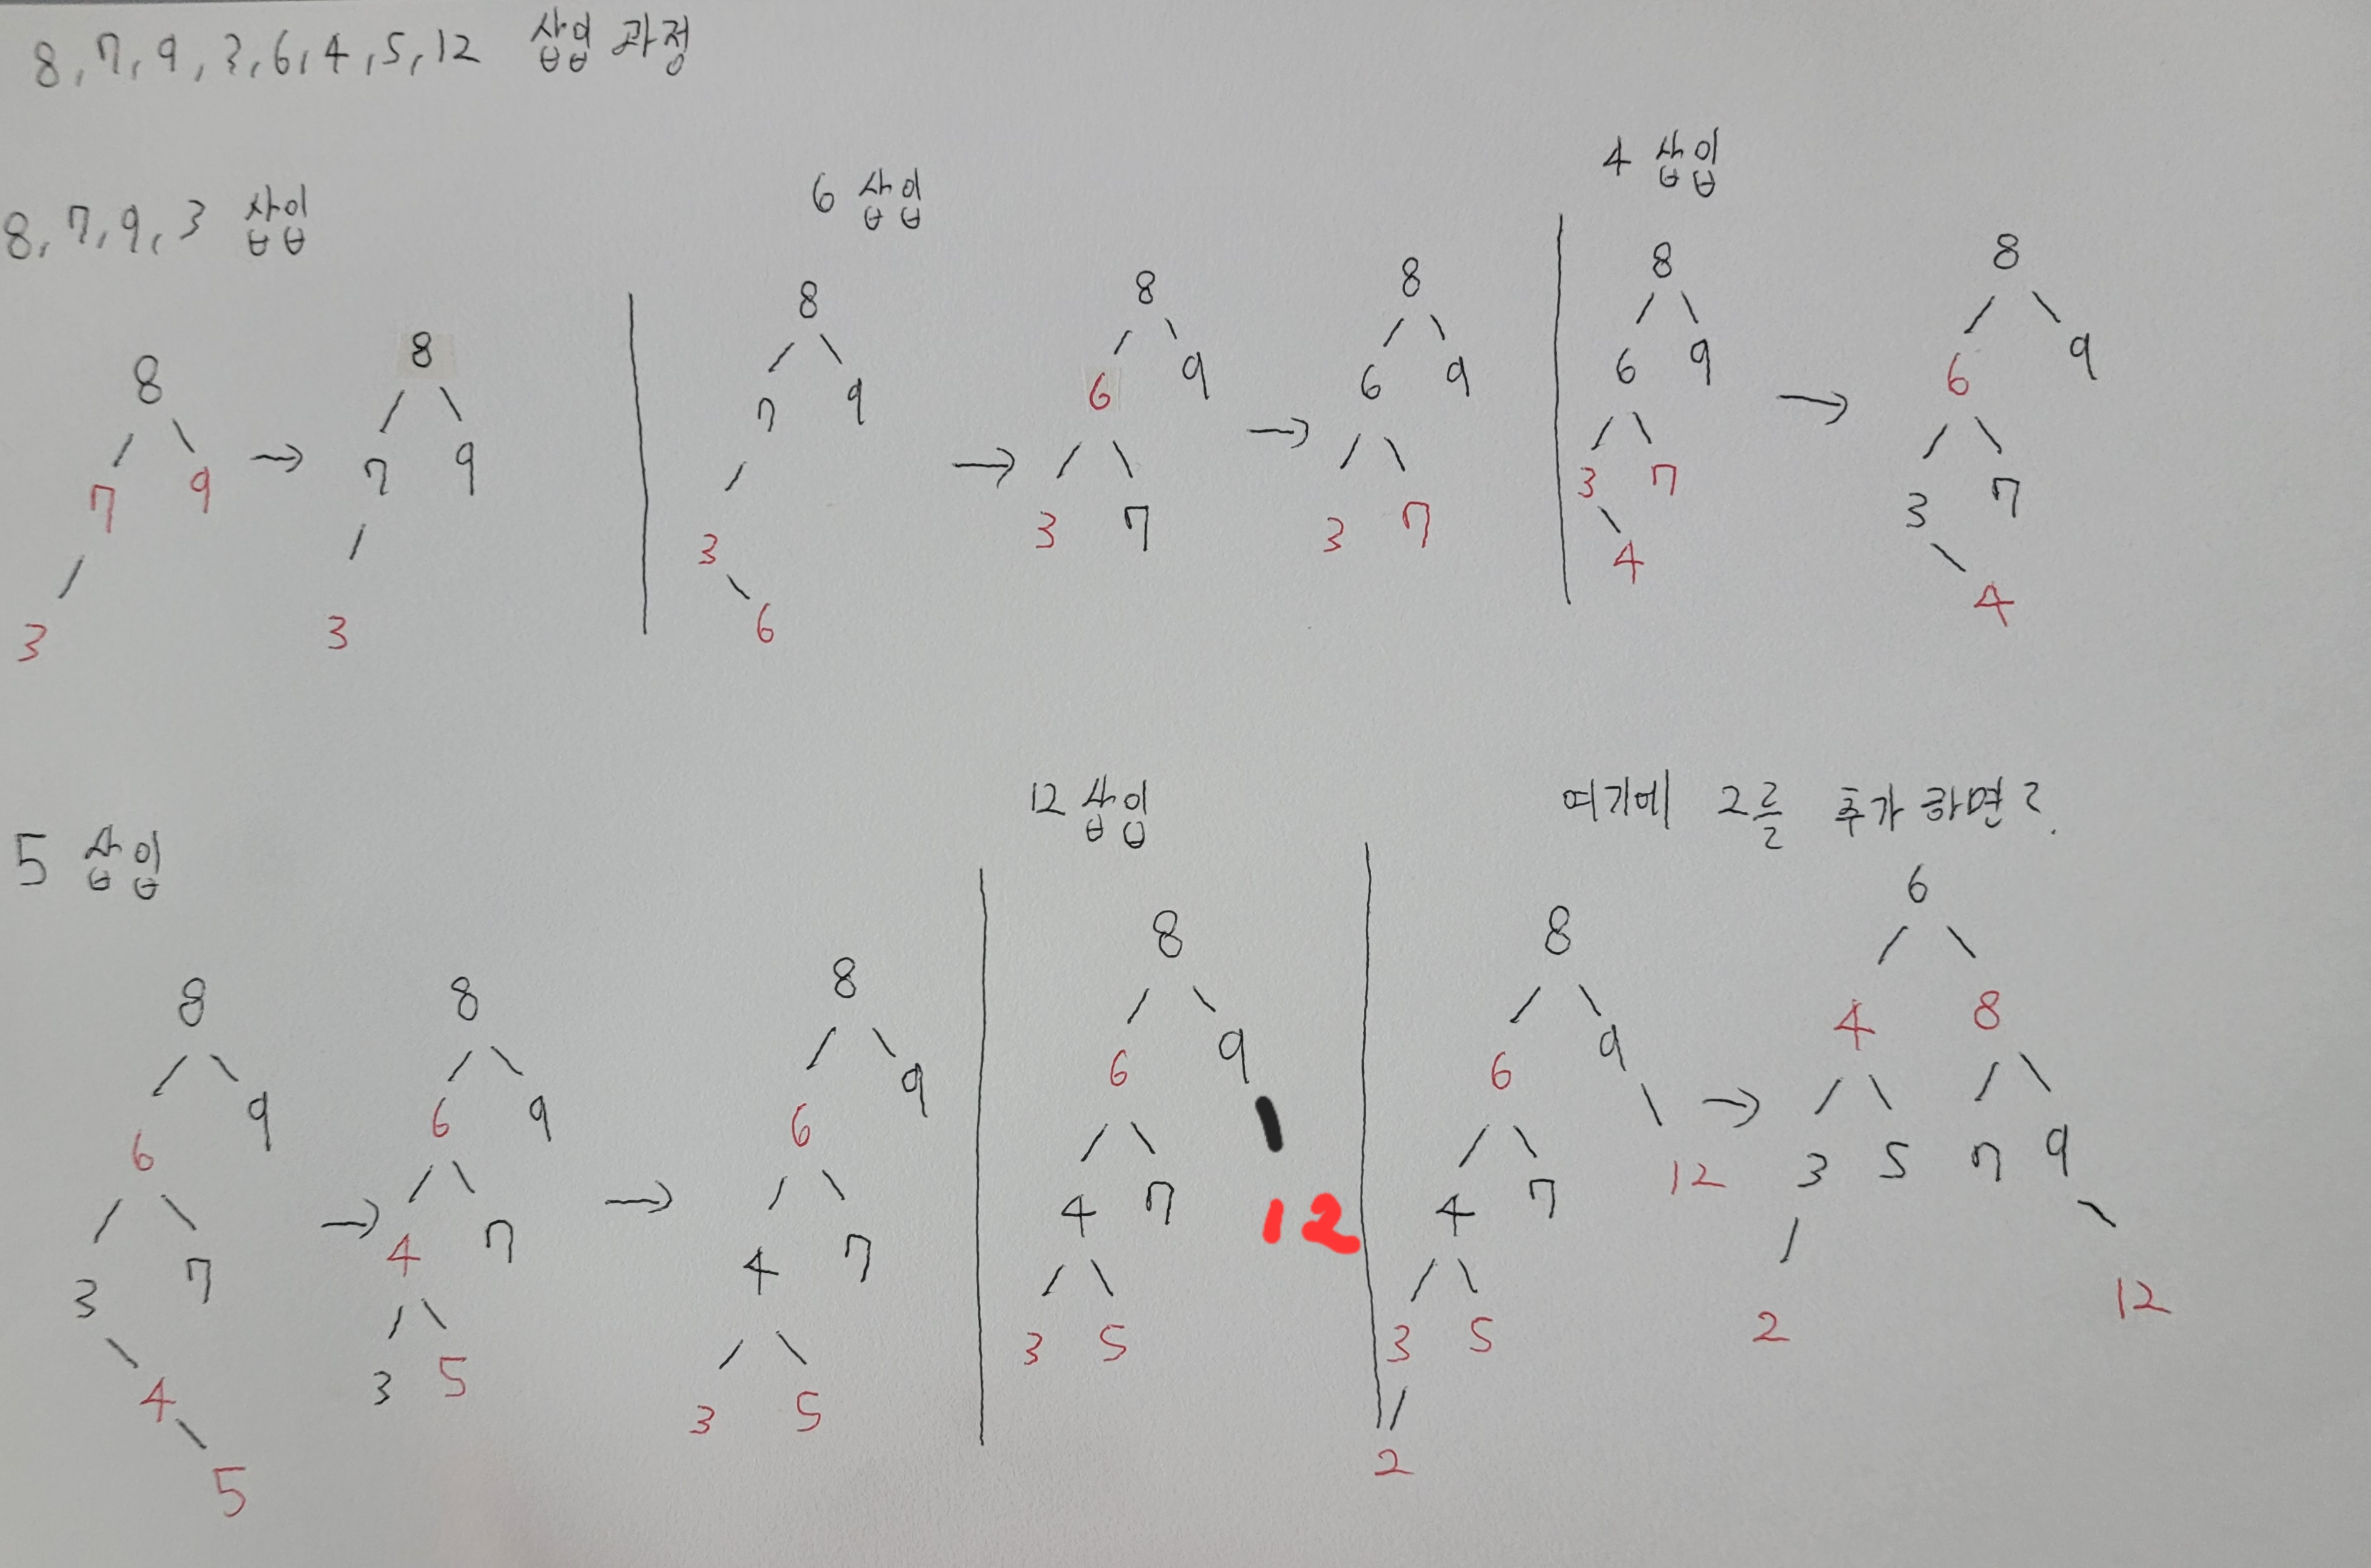 8, 7, 9, 3, 6, 4, 5, 12 삽입 과정
8, 7, 9, 3 삽입
8
7 9
3
→
8
7 9
3
6 삽입
8
7 9
3
6
→
8
6 9
3 7
→
8
6 9
3 7
4 삽입
8
6 9
3 7
4
→
8
6 9
3 7
4
5 삽입
8
6 9
3 7
4
5
→
8
6 9
4 7
3 5
→
8
6 9
4 7
3 5
12 삽입
8
6 9
4 7 12
3 5
여기에 2를 추가 하면?
8
6 9
4 7 12
3 5
2
→
6
4 8
3 5 7 9
2 12